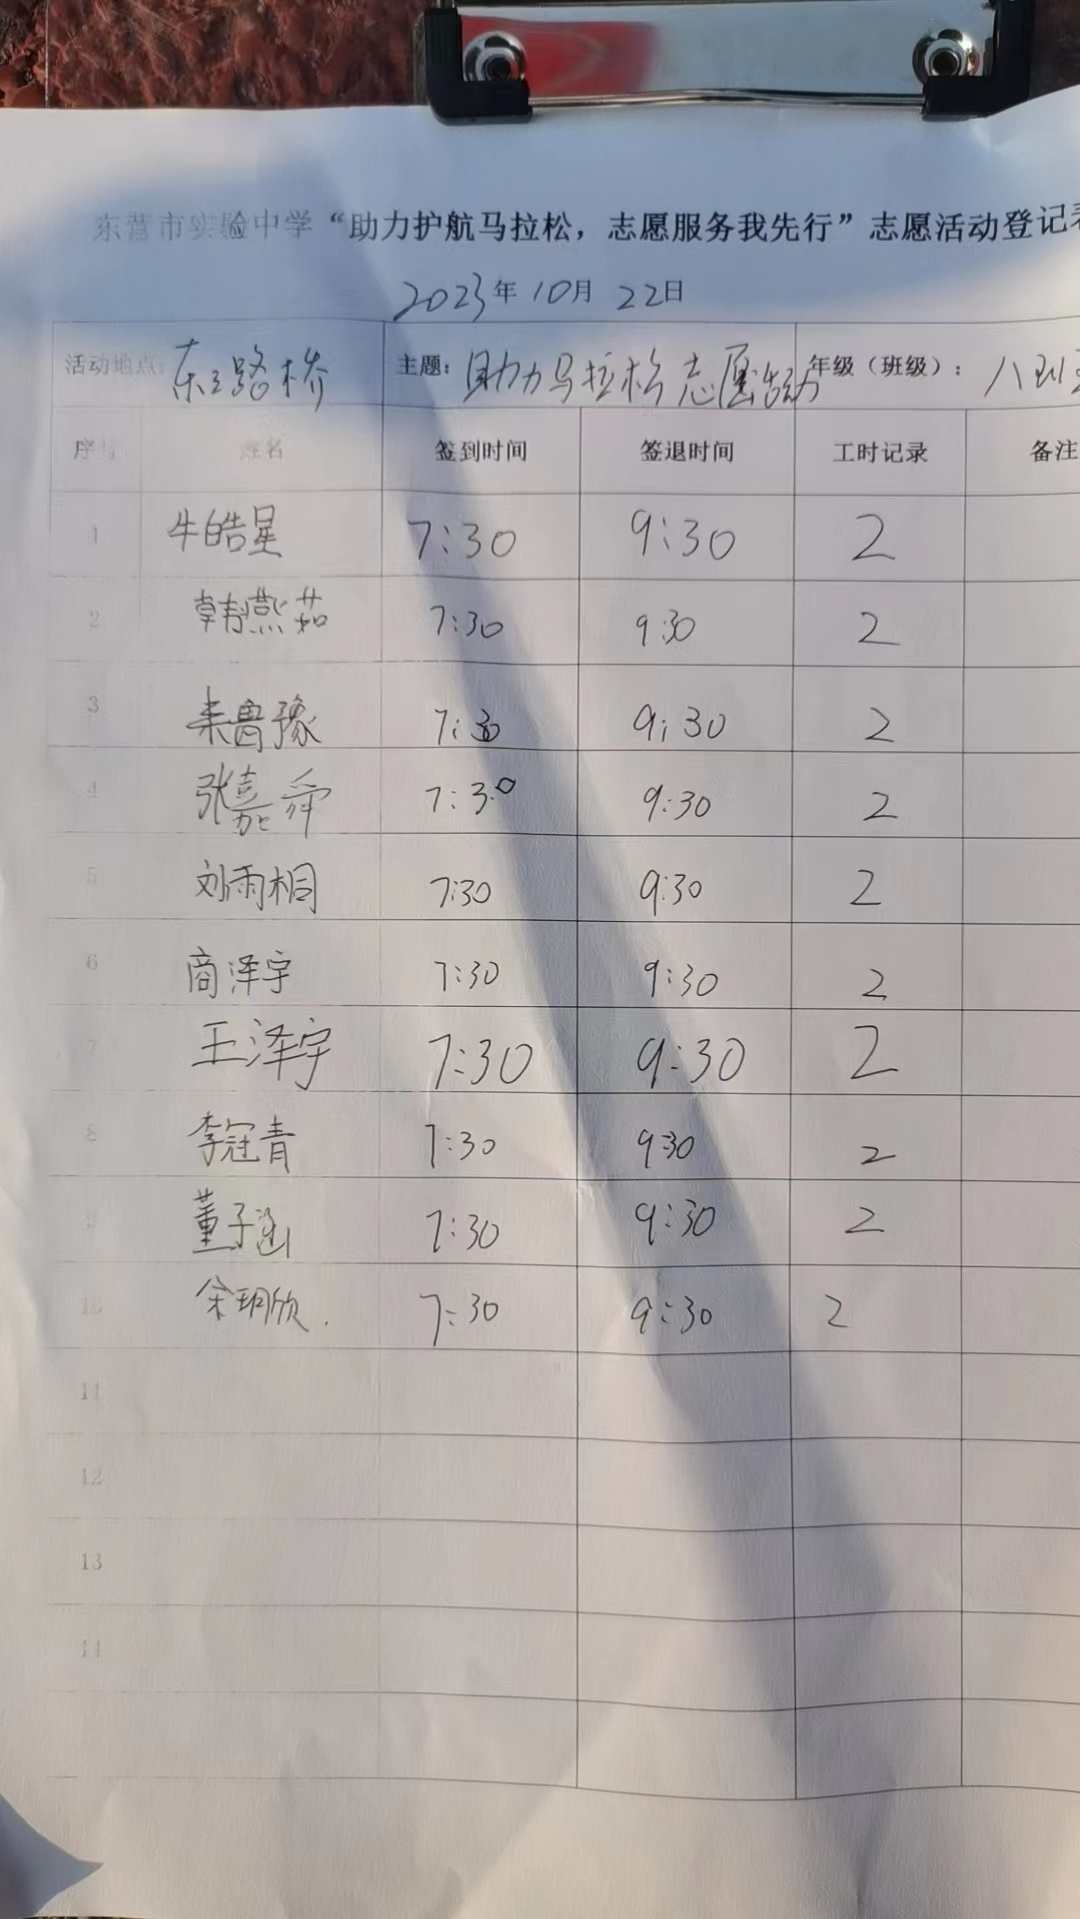 东营市实验中学“助力护航马拉松，志愿服务我先行”志愿活动登记表
2023年 10月 22日
活动地点：东三路桥 主题：助力马拉松志愿活动 年级（班级）：八
序号 姓名 签到时间 签退时间 工时记录 备注
1 牛皓星 7:30 9:30 2
2 韩燕茹 7:30 9:30 2
3 来鲁豫 7:30 9:30 2
4 张嘉舜 7:30 9:30 2
5 刘雨桐 7:30 9:30 2
6 商泽宇 7:30 9:30 2
7 王泽宇 7:30 9:30 2
8 李冠青 7:30 9:30 2
9 董子涵 7:30 9:30 2
10 余玥欣. 7:30 9:30 2
11
12
13
14